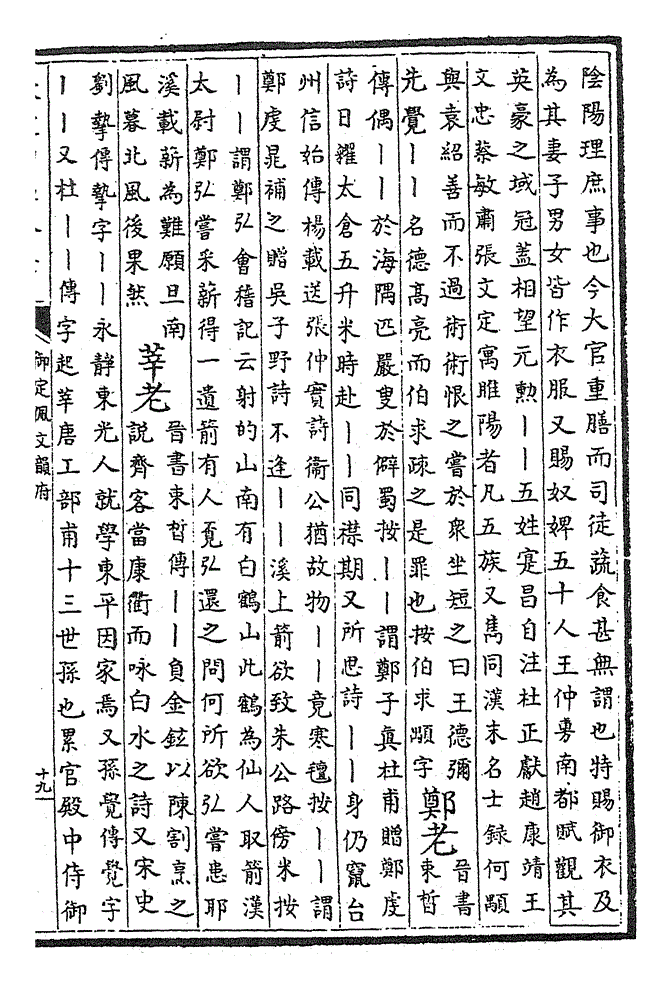 陰陽理庶事也今大官重膳而司徒蔬食甚無謂也特賜御衣及
為其妻子男女皆作衣服又賜奴婢五十人王仲旉南都賦觀其
英豪之域冠蓋相望元勲丨丨五姓寔昌自注杜正獻趙康靖王
文忠蔡敏肅張文定寓睢陽者凡五族又雋同漢末名士録何顒
與袁紹善而不過術術恨之嘗於衆坐短之曰王德彌
先覺丨丨名德髙亮而伯求疎之是罪也按伯求顒字
鄭老
晉書
束晳
傳偶丨丨於海隅匹嚴叟於僻蜀按丨丨謂鄭子真杜甫贈鄭虔
詩日糴太倉五升米時赴丨丨同襟期又所思詩丨丨身仍竄台
州信始傳楊載送張仲實詩衞公猶故物丨丨竟寒氊按丨丨謂
鄭虔晁補之贈吳子野詩不逢丨丨溪上箭欲致朱公路傍米按
丨丨謂鄭弘會稽記云射的山南有白鶴山此鶴為仙人取箭漢
太尉鄭弘嘗采薪得一遺箭有人覓弘還之問何所欲弘嘗患耶
溪載薪為難願旦南
風暮北風後果然
莘老
晉書束晳傳丨丨負金鉉以陳割烹之
說齊客當康衢而咏白水之詩又宋史
劉摯傳摯字丨丨永靜東光人就學東平因家焉又孫覺傳覺字
丨丨又杜丨丨傳字起莘唐工部甫十三世孫也累官殿中侍御
御定佩文韻府
十九